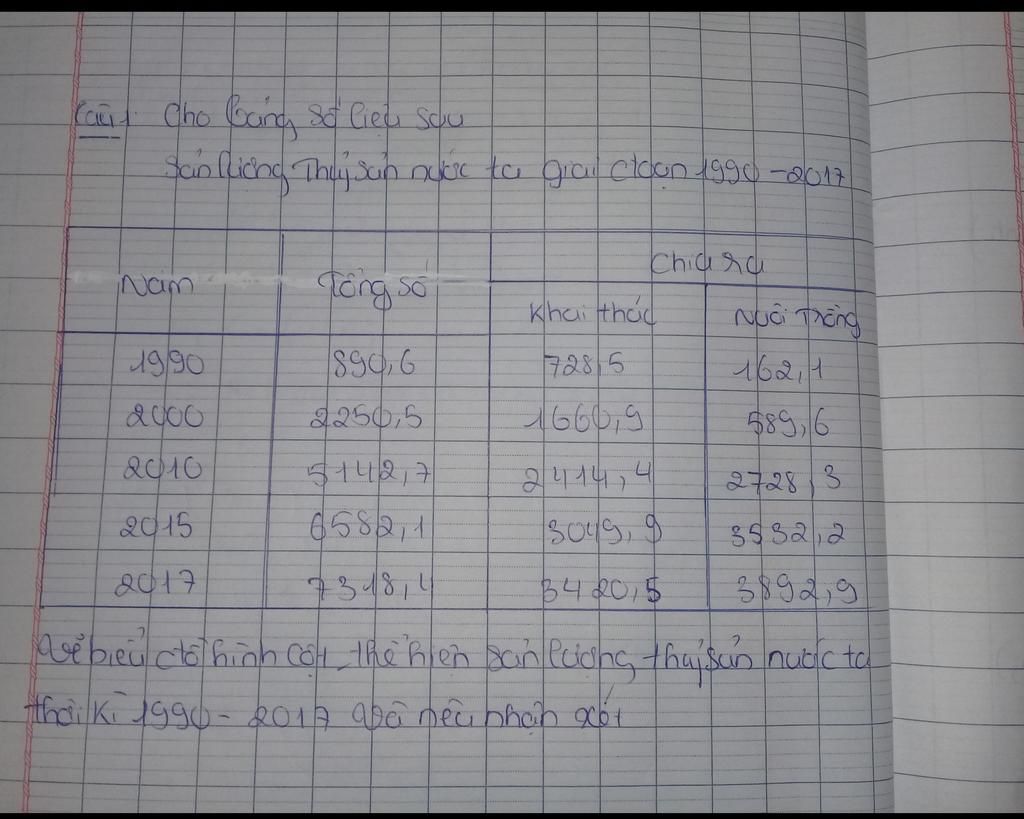 Câu 1: Cho bảng số liệu sau
Sản lượng Thủy sản nước ta giai đoạn 1990-2017
Năm Tổng số Chia ra
Khai thác Nuôi Trồng
1990 890,6 728,5 162,1
2000 2250,5 1660,9 589,6
2010 5142,7 2414,4 2728,3
2015 6582,1 3049,9 3532,2
2017 7318,4 3420,5 3892,9
Vẽ biểu đồ hình cột thể hiện sản lượng thủy sản nước ta
thời kì 1990-2017 và nêu nhận xét